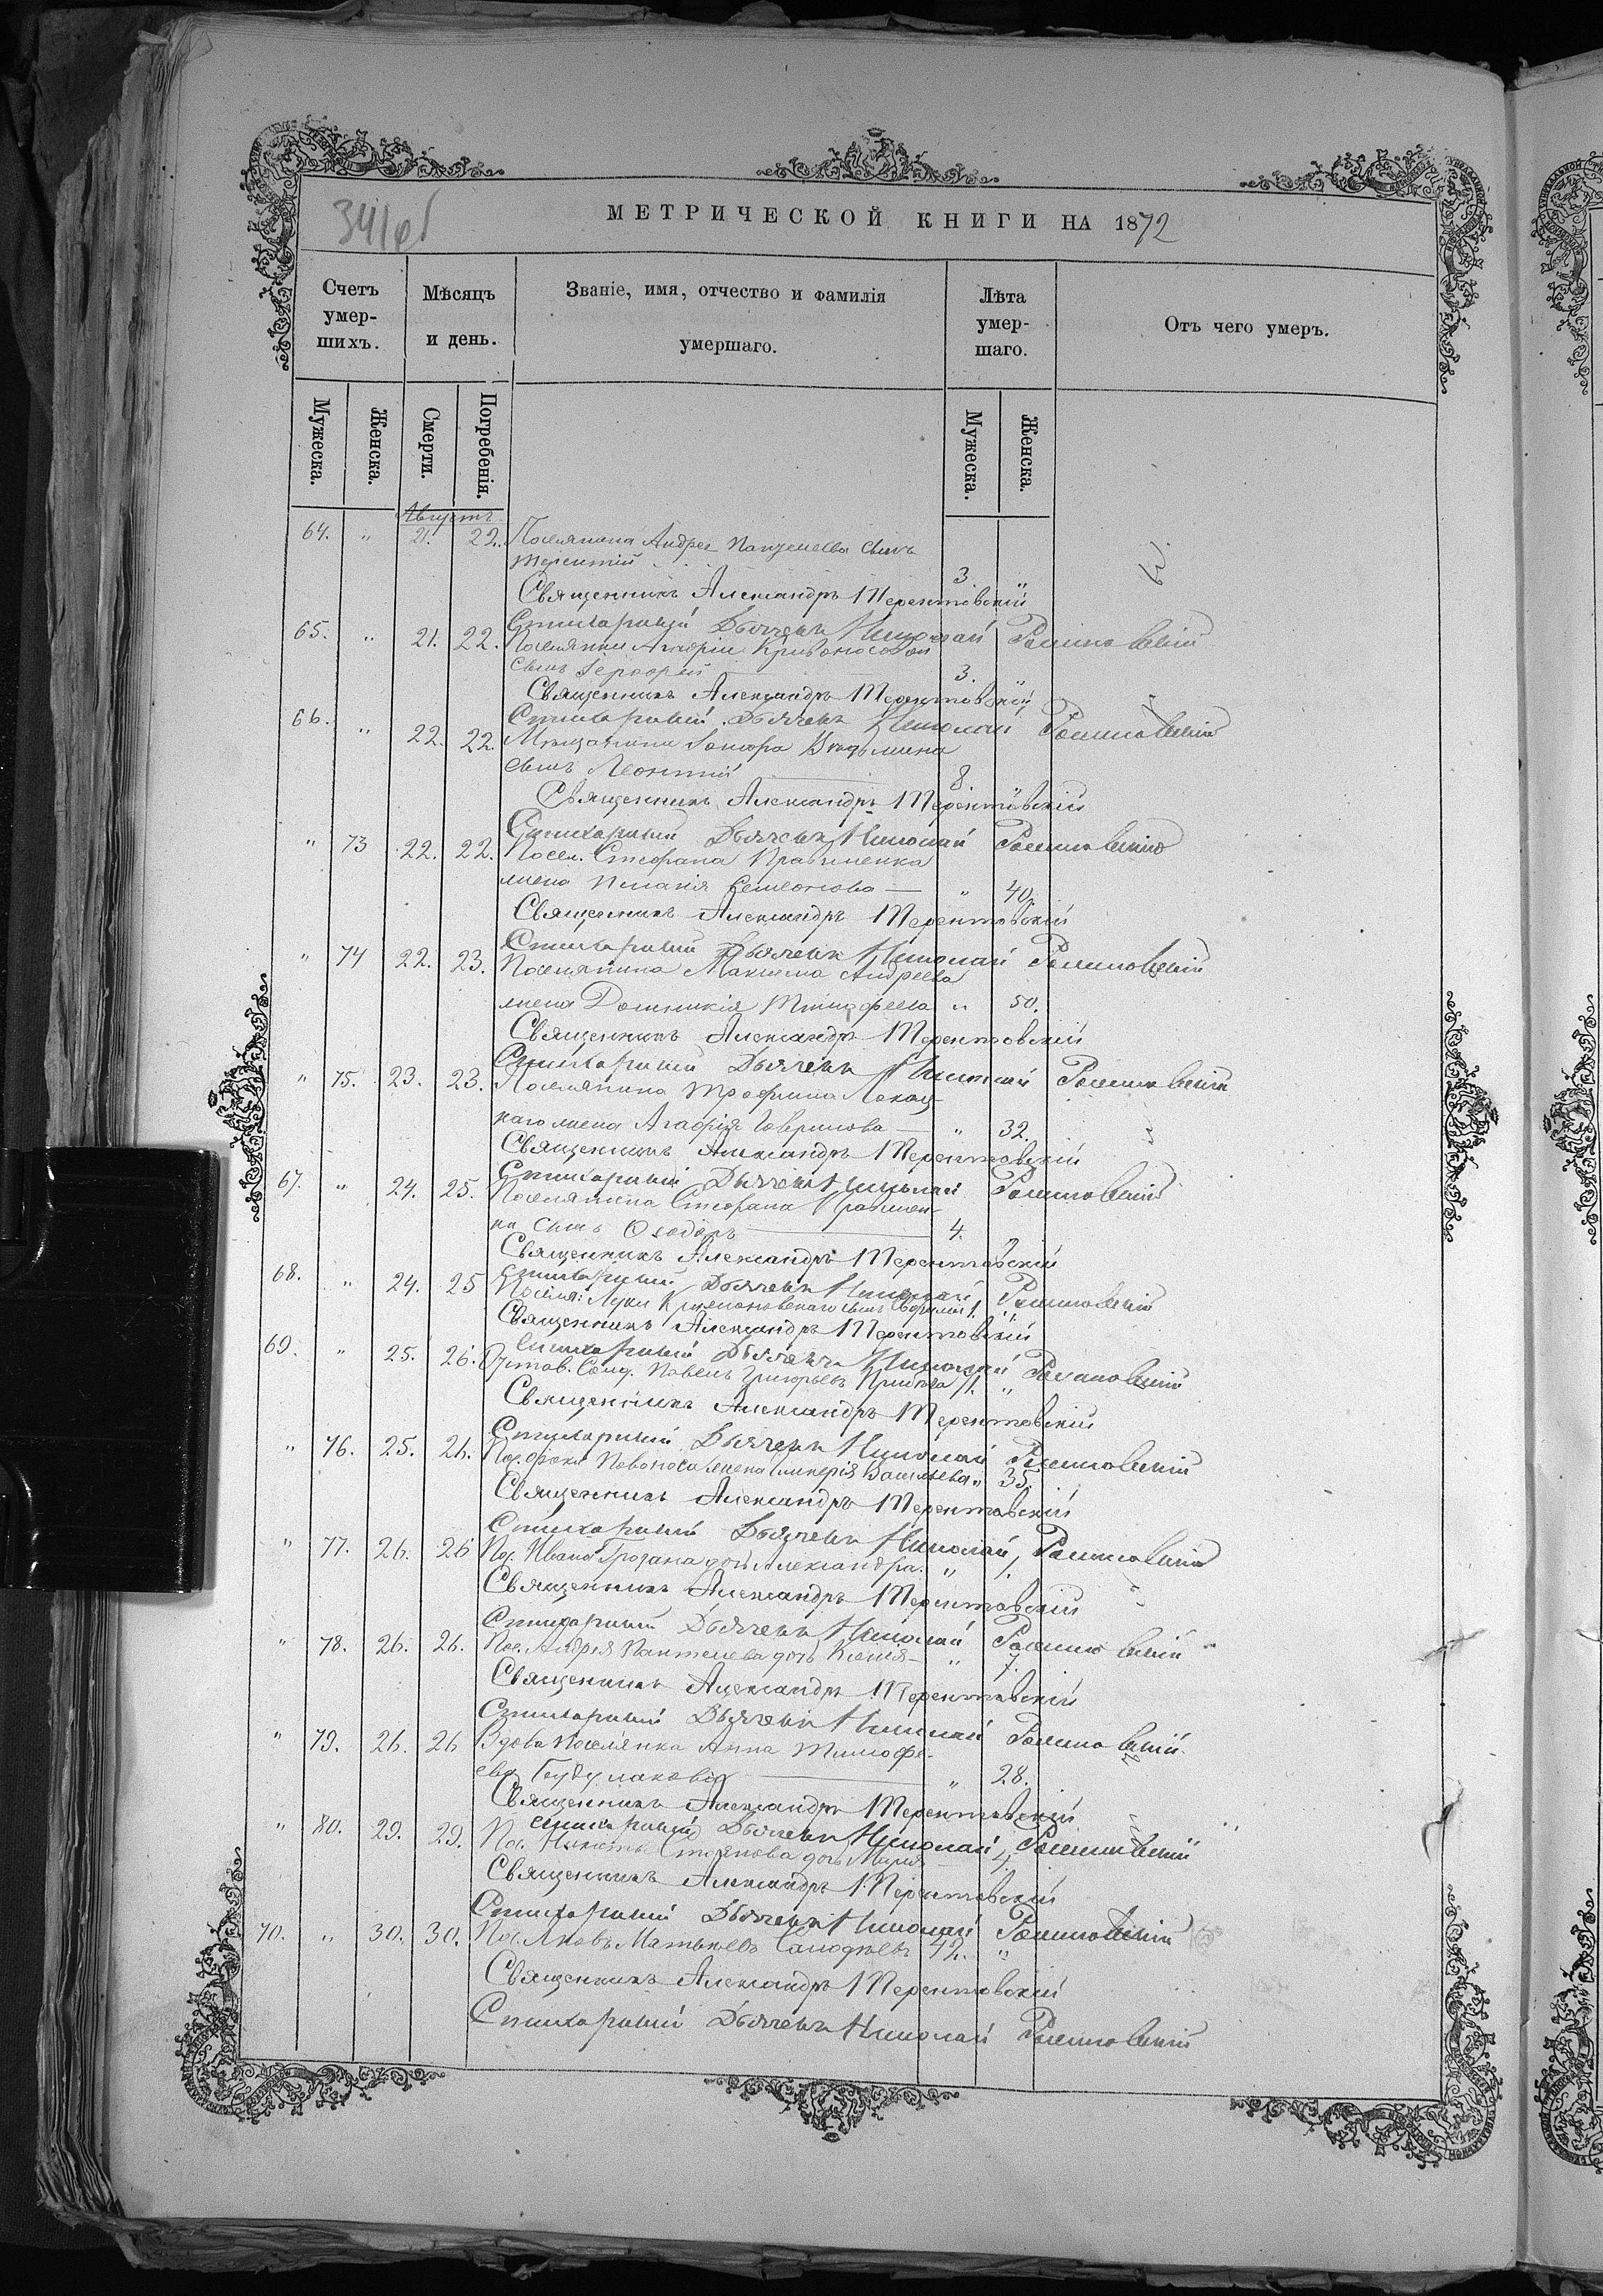 341об
МЕТРИЧЕСКОЙ КНИГИ НА 1872
Счетъ умер-шихъ.
Мѣсяцъ и день.
Званіе, имя, отчество и фамилія умершаго.
Лѣта умер-шаго.
Отъ чего умеръ.
Мужеска.
Женска.
Смерти.
Погребенія.
Мужеска.
Женска.
Августъ
64. " 21. 22. Поселянина Андрея Пантелеева сынъ
Терентій 3. "
Священникъ Александръ Терентовскій
Стихарный Дьячекъ Николай
65. " 21. 22. Поселянки Агафіи Кривоносовой
сынъ 3. "
Священникъ Александръ Терентовскій
Стихарный Дьячекъ Николай
66. " 22. 22. Мѣщанина
сынъ Леонтій 8. "
Священникъ Александръ Терентовскій
Стихарный Дьячекъ Николай
" 73 22. 22. Посел. Стефана
жена Пелагія Семенова " 40.
Священникъ Александръ Терентовскій
Стихарный Дьячекъ Николай
" 74 22. 23. Поселянина Максима Андреева
жена Домникія Тимофеева " 50.
Священникъ Александръ Терентовскій
Стихарный Дьячекъ Николай
" 75. 23. 23. Поселянина Трофима
жена Агафія Гаврилова " 32.
Священникъ Александръ Терентовскій
Стихарный Дьячекъ Николай
67. " 24. 25. Поселянина Стефана
ка сынъ Ѳеодоръ 4. "
Священникъ Александръ Терентовскій
Стихарный Дьячекъ Николай
68. " 24. 25 Посел: Луки Крижановскаго сынъ 1. "
Священникъ Александръ Терентовскій
Стихарный Дьячекъ Николай
69. " 25. 26. Отстав. Солд. Павелъ Григорьевъ "
Священникъ Александръ Терентовскій
Стихарный Дьячекъ Николай
" 76. 25. 26. Пос. жена Васильева " 35.
Священникъ Александръ Терентовскій
Стихарный Дьячекъ Николай
" 77. 26. 26 Пос. Ивана дочь Александра. "
Священникъ Александръ Терентовскій
Стихарный Дьячекъ Николай
" 78. 26. 26. Пос. Андрея Пантелеева дочь Ксенія " 7.
Священникъ Александръ Терентовскій
Стихарный Дьячекъ Николай
" 79. 26. 26 Вдова поселянка Анна Тимофе-
ева " 28.
Священникъ Александръ Терентовскій
Стихарный Дьячекъ Николай
" 80. 29. 29. Пос. Никиты Стоянова дочь Марія 4.
Священникъ Александръ Терентовскій
Стихарный Дьячекъ Николай
70. " 30. 30. Пос. Яковъ Матвѣевъ 42. "
Священникъ Александръ Терентовскій
Стихарный Дьячекъ Николай